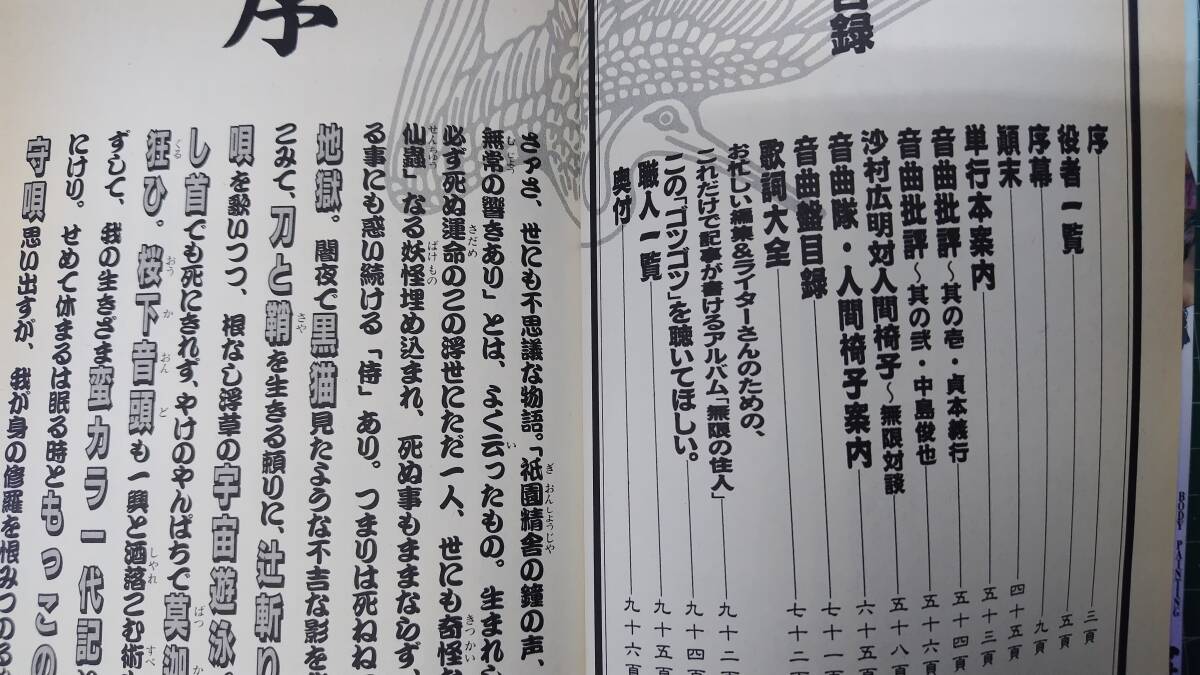 目録
序 三頁
役者一覧 五頁
序幕 九頁
顛末 四十五頁
単行本案内 五十三頁
音曲批評～其の壱・貞本義行 五十四頁
音曲批評～其の弐・中島俊也 五十六頁
沙村広明対人間椅子～無限対談 五十八頁
音曲隊・人間椅子案内 六十五頁
音曲盤目録 七十一頁
歌詞大全 七十二頁
お忙しい編集&ライターさんのための、
これだけで記事が書けるアルバム「無限の住人」 九十二頁
この、「ゴツゴツ」を聴いてほしい。 九十四頁
職人一覧 九十五頁
奥付 九十六頁
序
さァさ、世にも不思議な物語。「祇園精舎の鐘の声、
無常の響きあり」とは、よく云ったもの。生まれし
必ず死ぬ運命のこの浮世にただ一人、世にも奇怪な
仙蟲」なる妖怪埋め込まれ、死ぬ事もままならず、
る事にも惑い続ける「侍」あり。つまりは死ねね
地獄。闇夜で黒猫見たような不吉な影を
こみて、刀と鞘を生きる頼りに、辻斬り
唄を歌いつつ、根なし浮草の宇宙遊泳
し首でも死にきれず、やけのやんぱちで莫迦
狂ひ。桜下音頭も一興と洒落こむ術
ずして、我の生きざま蛮カラ一代記
にけり。せめて休まるは眠る時ともっこの
守唄思い出すが、我が身の修羅を恨みつのる
BODY PAINTING